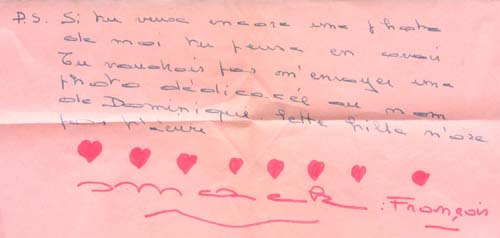 P.S. Si tu veux encore une photo
de moi tu peux en avoir
Tu voudrais pas m'envoyer une
photo dédicacée au nom
de Dominique. Cette fille n'ose
pas t'écrire
: François